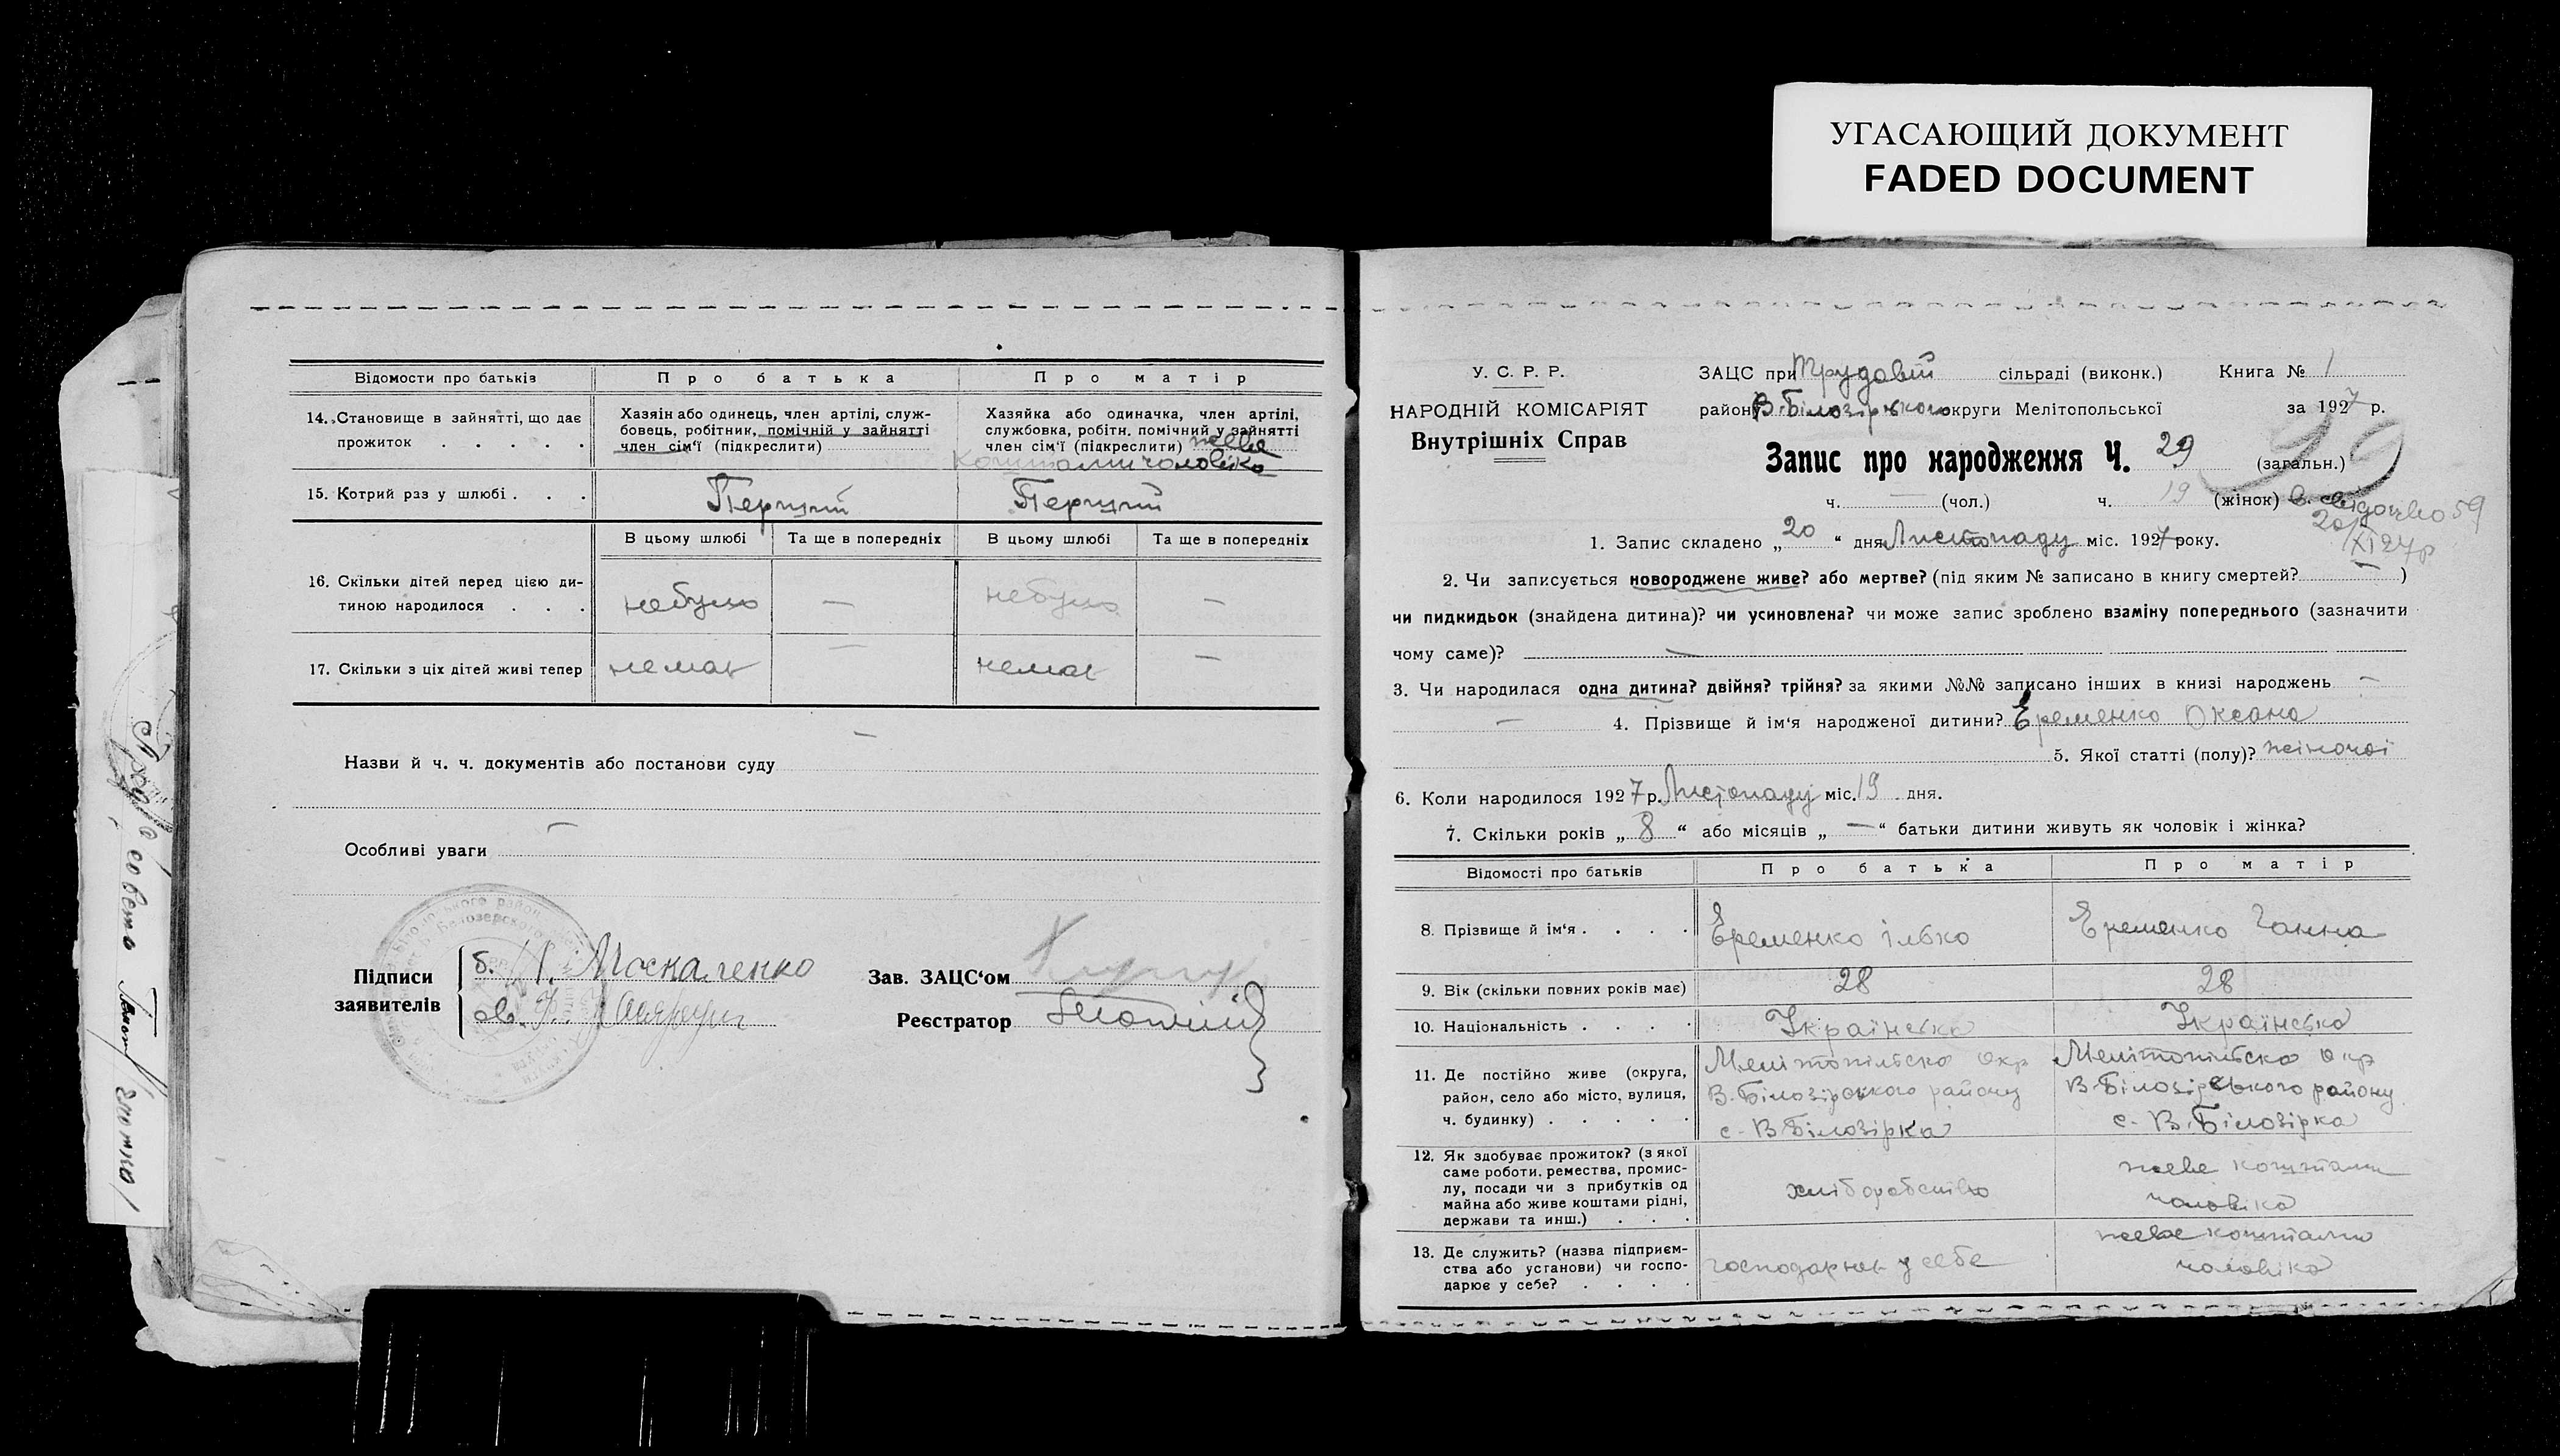 УГАСАЮЩИЙ ДОКУМЕНТ
FADED DOCUMENT
Відомости про батьків
Про батька
Про матір
14. Становище в зайнятті, що дає прожиток
Хазяїн або одинець, член артілі, служ-
бовець, робітник, помічній у зайнятті
член сім'ї (підкреслити)
Хазяйка або одиначка, член артілі,
службовка, робітн. помічний у зайнятті
член сім'ї (підкреслити) живе
коштами чоловіка
15. Котрий раз у шлюбі
Перший
Перший
В цьому шлюбі
Та ще в попередніх
В цьому шлюбі
Та ще в попередніх
16. Скільки дітей перед цією ди-
тиною народилося
небуло
—
небуло
—
17. Скільки з ціх дітей живі тепер
немає
—
немає
—
Назви й ч. ч. документів або постанови суду —
Особливі уваги —
Підписи
заявителів
б. Москаленко
Зав. ЗАЦС'ом
Реєстратор
У. С. Р. Р.
НАРОДНІЙ КОМІСАРІЯТ
Внутрішніх Справ
ЗАЦС при Трудовій сільраді (виконк.)
Книга № 1
району В.Білозірського округи Мелітопольської
за 1927 р.
Запис про народження Ч. 29 (загальн.)
ч. — (чол.) ч. 19 (жінок)
59
20/XI 27р
1. Запис складено „20“ дня Листопаду міс. 1927 року.
2. Чи записується новороджене живе? або мертве? (під яким № записано в книгу смертей? — )
чи пидкидьок (знайдена дитина)? чи усиновлена? чи може запис зроблено взаміну попереднього (зазначити
чому саме)? —
3. Чи народилася одна дитина? двійня? трійня? за якими №№ записано інших в книзі народжень —
— 4. Прізвище й ім'я народженої дитини? Єременко Оксана
5. Якої статті (полу)? жіночої
6. Коли народилося 1927 р. Листопаду міс. 19 дня.
7. Скільки років „8“ або місяців „—“ батьки дитини живуть як чоловік і жінка?
Відомості про батьків
Про батька
Про матір
8. Прізвище й ім'я
Єременко Ілько
Єременко Ганна
9. Вік (скільки повних років має)
28
28
10. Національність
Українська
Українська
11. Де постійно живе (округа,
район, село або місто, вулиця,
ч. будинку)
Мелітопільска Окр
В.Білозірського району
с. В Білозірка
Мелітопільска Окр
В.Білозірського району
с. В.Білозірка
12. Як здобуває прожиток? (з якої
саме роботи, ремества, промис-
лу, посади чи з прибутків од
майна або живе коштами рідні,
держави та инш.)
хліборобство
живе коштами
чоловіка
13. Де служить? (назва підприєм-
ства або установи) чи госпо-
дарює у себе?
господарює у себе
живе коштами
чоловіка